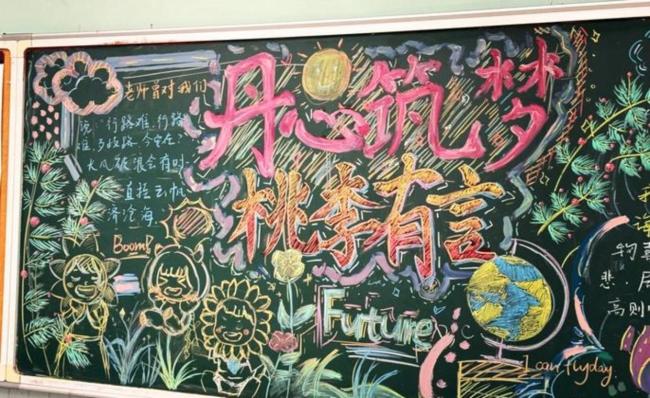 老师曾对我们
说：行路难，行路
难，多歧路，今安在
大风破浪会有时
直挂云帆
济沧海
丹心筑梦
桃李有言
Boom!
Future
I can fly day.
物喜
悲.居
高则